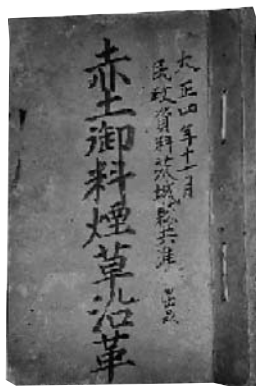 大正四年十一月
民政資料茨城縣共進
赤土御料煙草沿革